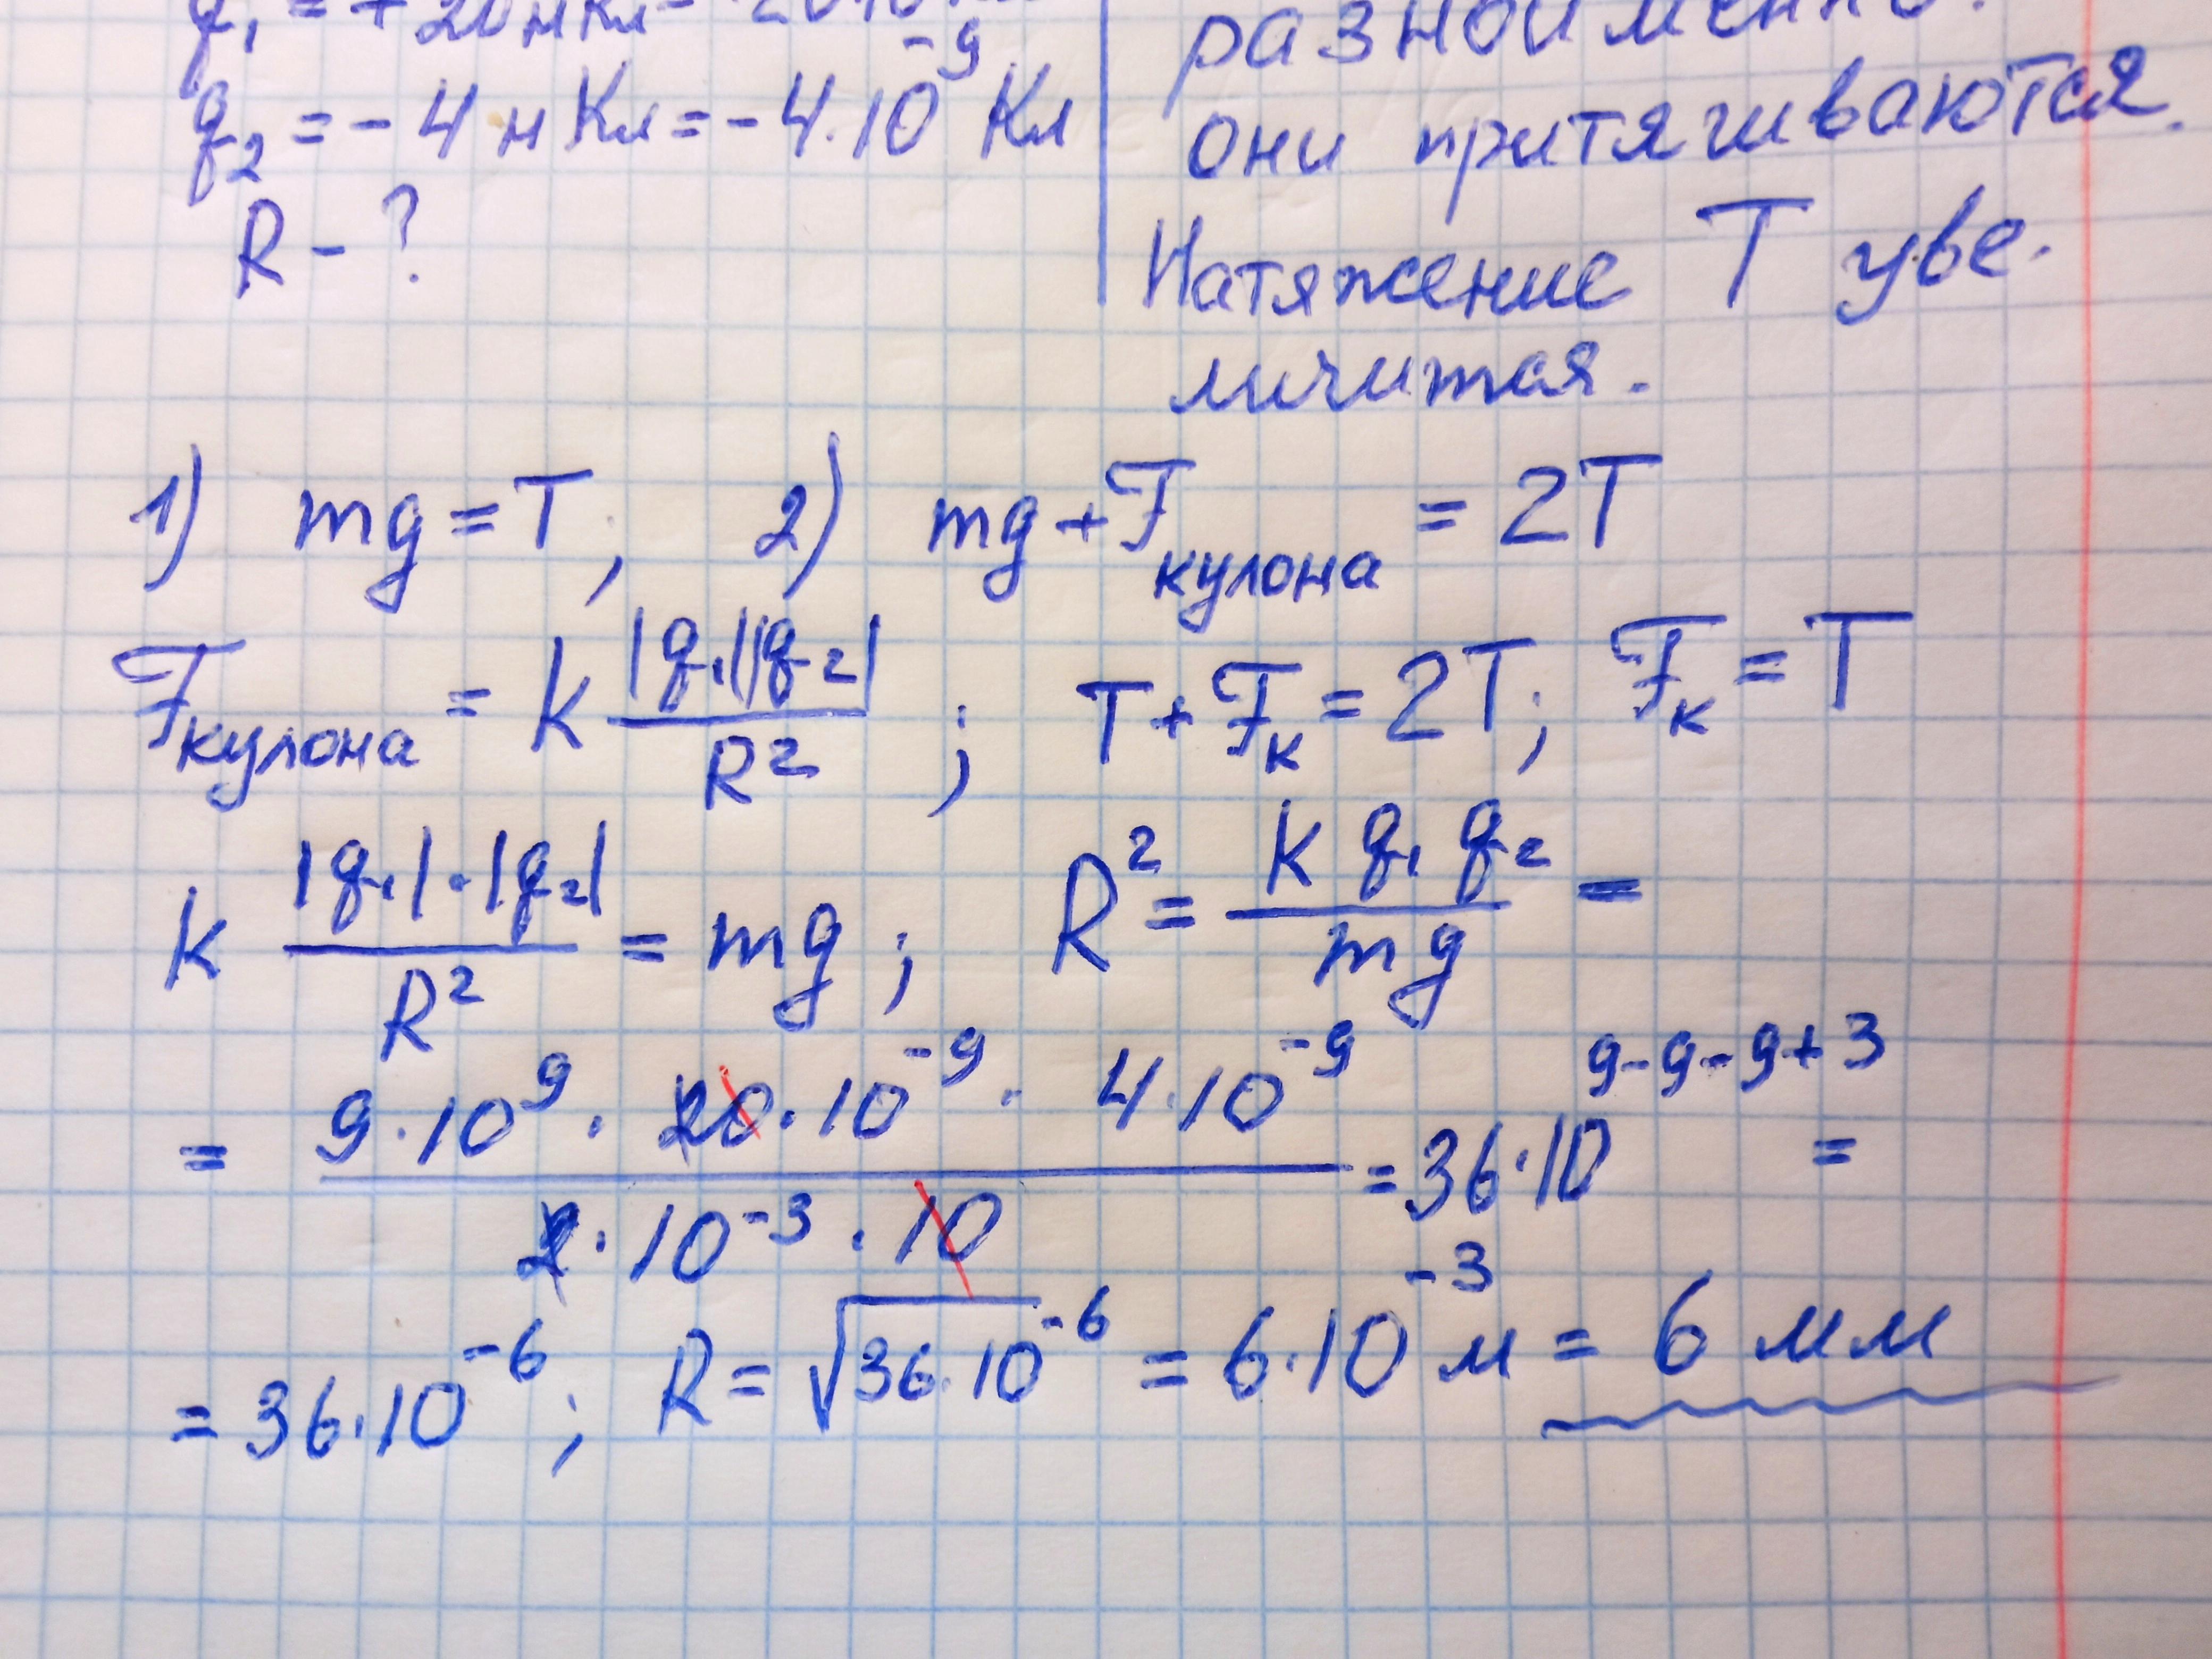 q₁ = + 20 нКл =
разноимённо.
q₂ = - 4 нКл = - 4·10⁻⁹ Кл
они притягиваются.
R - ?
Натяжение T уве-
личится.
1) mg = T, 2) mg + F кулона = 2T
F кулона = k |q₁||q₂| / R² ; T + Fк = 2T; Fк = T
k |q₁|·|q₂| / R² = mg ; R² = k q₁ q₂ / mg =
= 9·10⁹ · 20·10⁻⁹ · 4·10⁻⁹ / 2·10⁻³ · 10 = 36·10⁹⁻⁹⁻⁹⁺³ =
= 36·10⁻⁶ ; R = √36·10⁻⁶ = 6·10⁻³ м = 6 мм